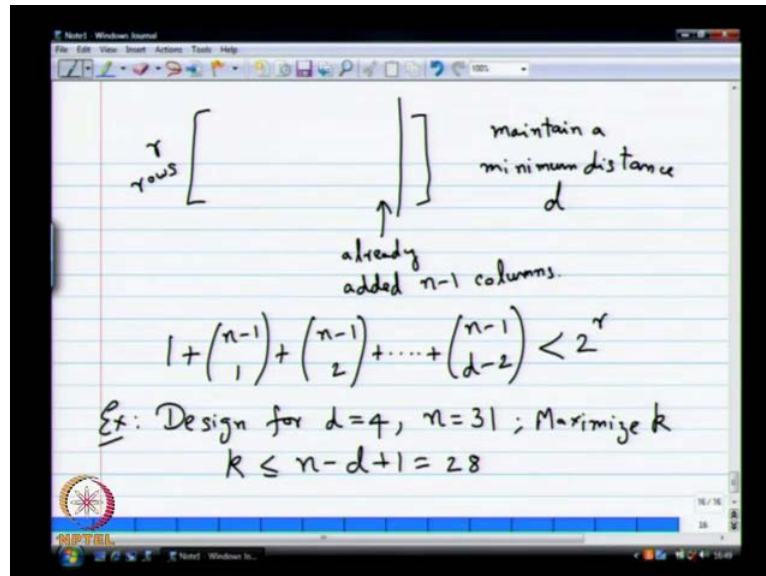 Note1 - Windows Journal
File Edit View Insert Actions Tools Help
100%
r rows [ ] maintain a
minimum distance
d
already
added n-1 columns.
1 + (n-1 1) + (n-1 2) + ..... + (n-1 d-2) < 2^r
Ex: Design for d=4, n=31 ; Maximize k
k ≤ n-d+1 = 28
16 / 16
16
NPTEL
Note1 - Windows Jo...
16:49